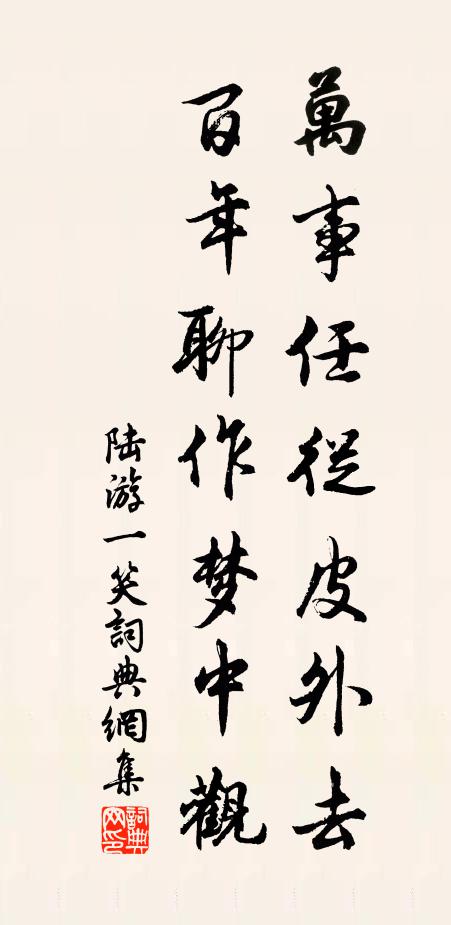 萬事任從皮外去
百年聊作梦中觀
陆游一笑詞典網集
詞典網印